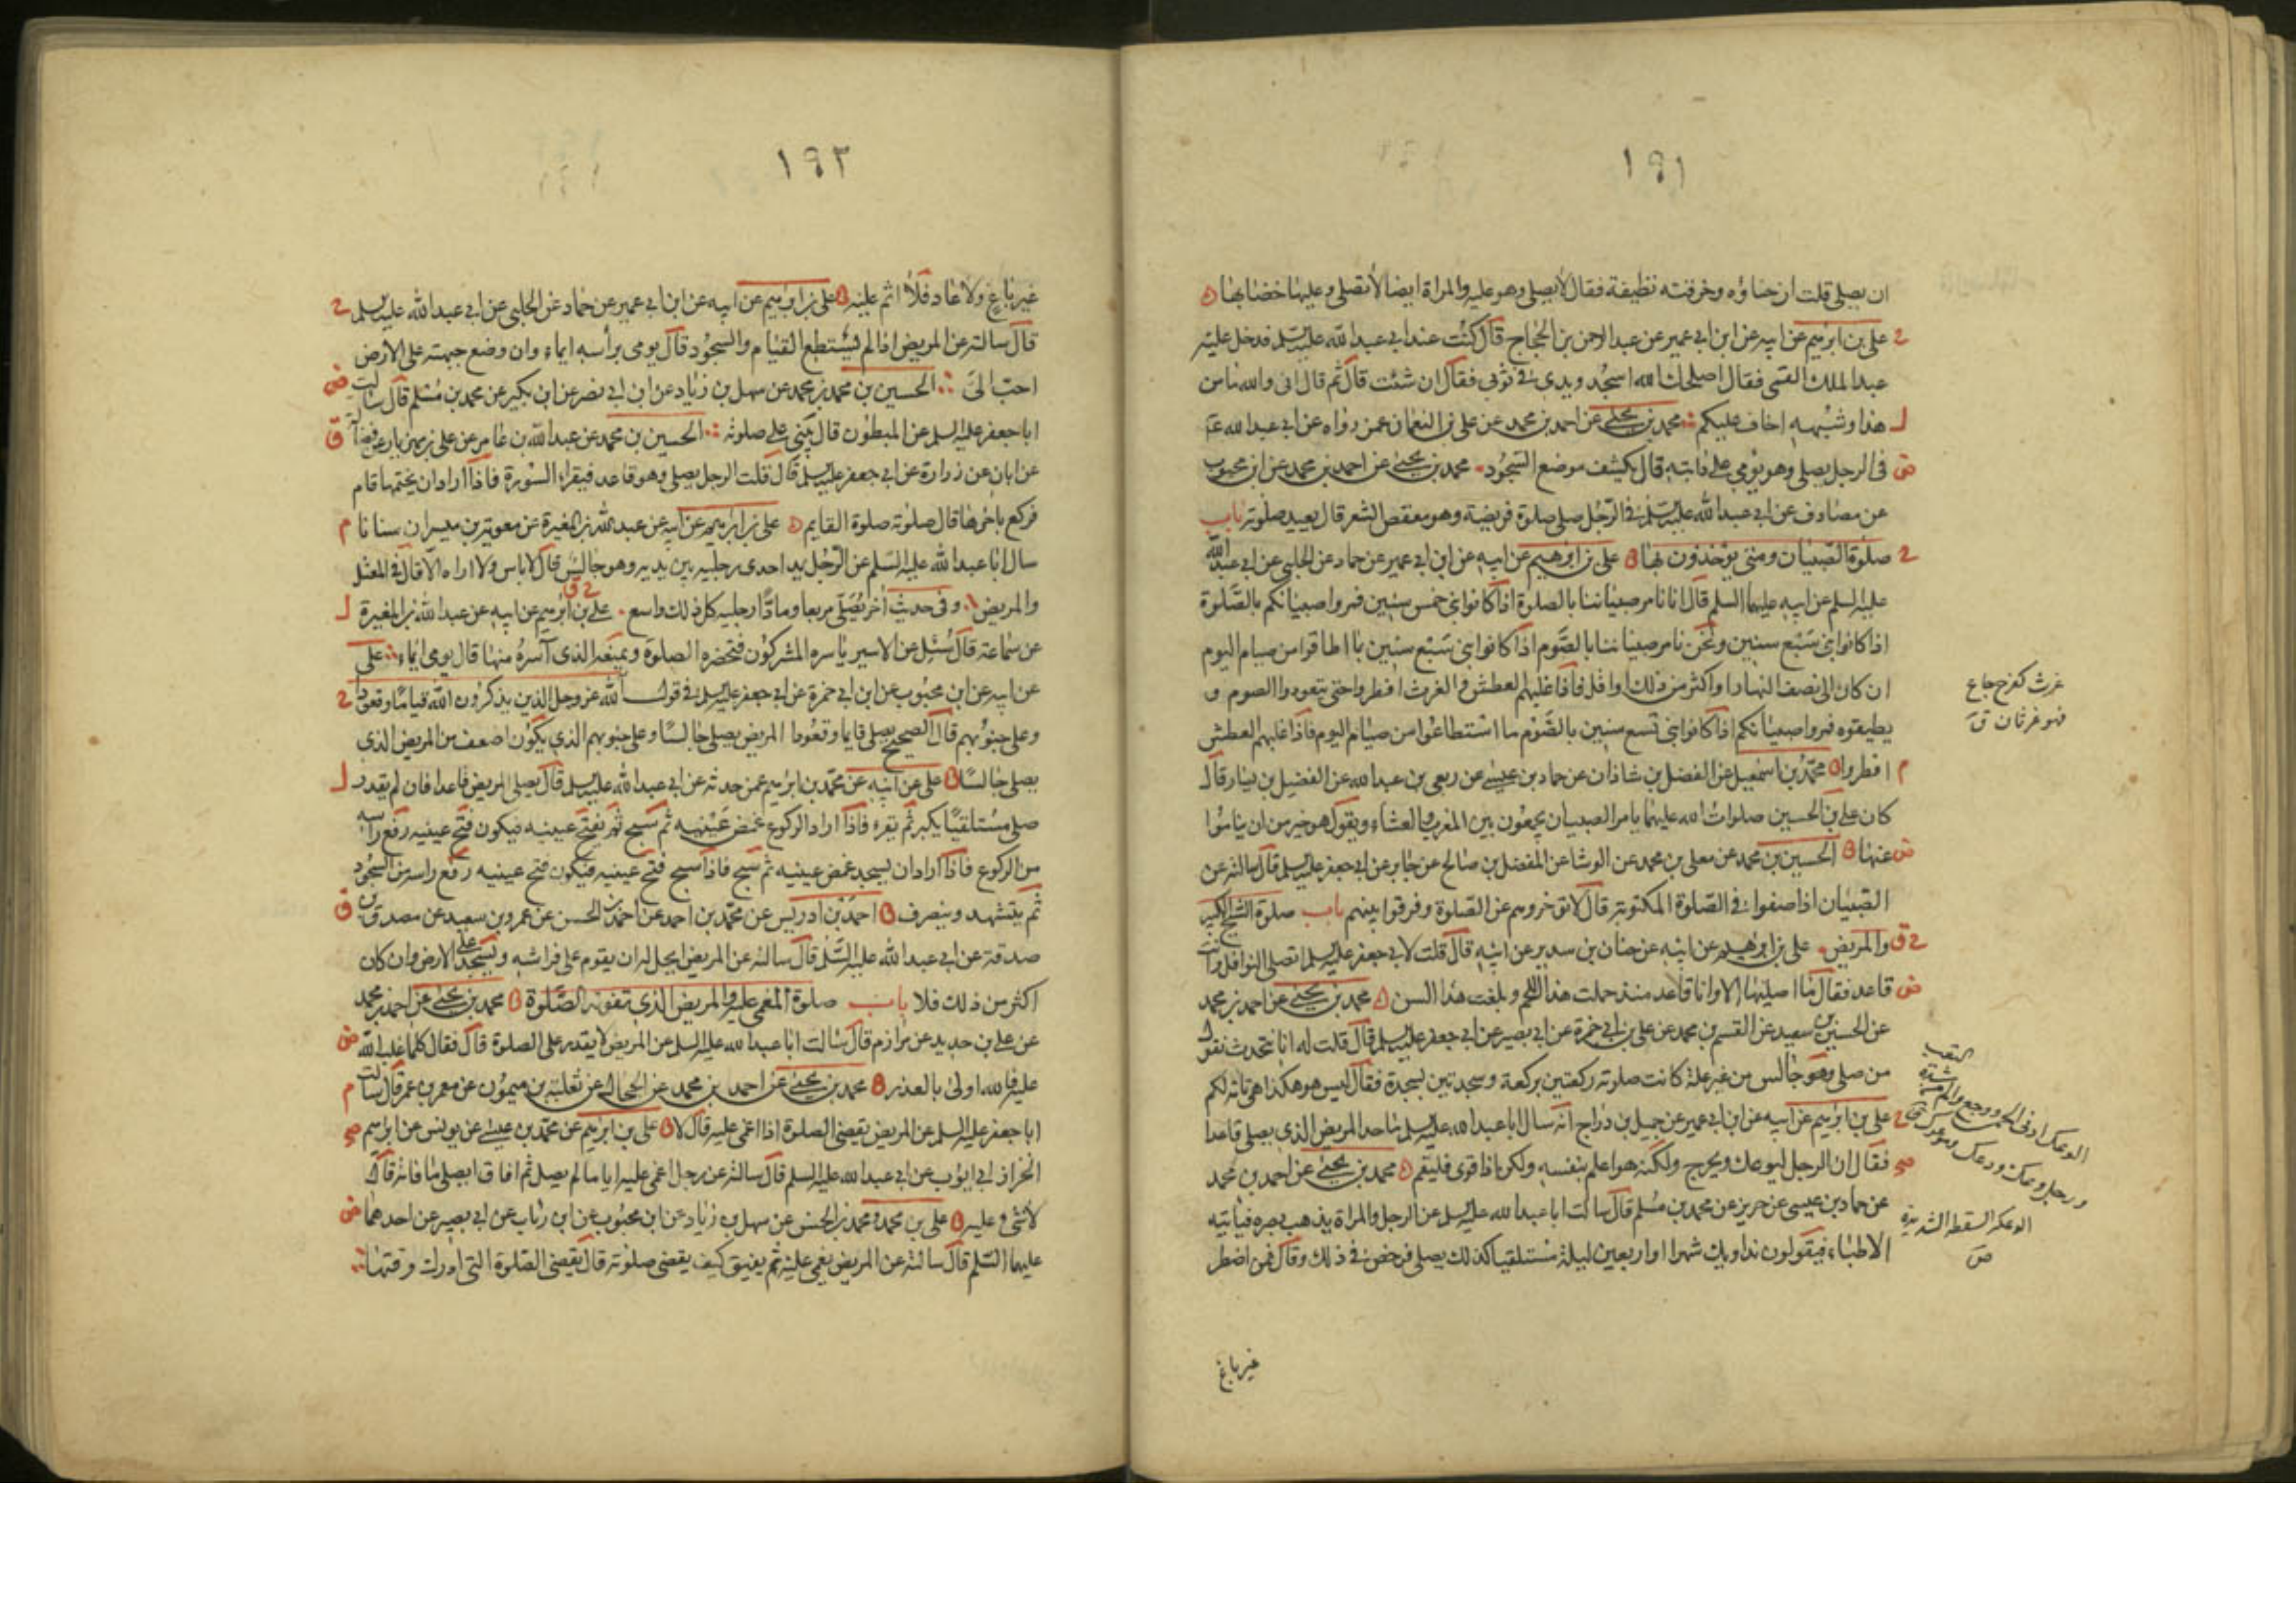 ١٩١
ان يصلى قلت ان حناؤه وخرقته نظيفة فقال لا يصلى وهو عليه والمراة ايضا لا تصلى وعليها خضابها
ح على بن ابرهيم عن ابيه عن ابن ابى عمير عن عبد الرحمن بن الحجاج قال كنت عند ابى عبد الله عليه السلم فدخل عليه
عبد الملك القمى فقال اصلحك الله اسجد ويدى فى ثوبى فقال ان شئت قال ثم قال انى والله ما من
ل هذا وشبهه اخاف عليكم محمد بن يحيى عن احمد بن محمد عن على بن النعمان عمن رواه عن ابى عبد الله ع
ض فى الرجل يصلى وهو يؤمى على دابته قال يكشف موضع السجود محمد بن يحيى عن احمد بن محمد عن ابن محبوب
عن مصادف عن ابى عبد الله عليه السلم فى الرجل صلى صلوة فريضة وهو معقص الشعر قال يعيد صلوته باب
ح صلوة الصبيان ومتى يؤخذون بها على بن ابرهيم عن ابيه عن ابن ابى عمير عن حماد عن الحلبى عن ابى عبد الله
عليه السلم عن ابيه عليهما السلم قال انا نامر صبياننا بالصلوة اذا كانوا بنى خمس سنين فمروا صبيانكم بالصلوة
اذا كانوا بنى سبع سنين ونحن نامر صبياننا بالصوم اذا كانوا بنى سبع سنين بما اطاقوا من صيام اليوم
ان كان الى نصف النهار او اكثر من ذلك او اقل فاذا غلبهم العطش والغرث افطروا حتى يتعودوا الصوم و
يطيقوه فمروا صبيانكم اذا كانوا بنى تسع سنين بالصوم ما استطاعوا من صيام اليوم فاذا غلبهم العطش
م افطروا محمد بن اسمعيل عن الفضل بن شاذان عن حماد بن عيسى عن ربعى بن عبد الله عن الفضيل بن يسار قال
كان على بن الحسين صلوات الله عليهما يامر الصبيان يجمعون بين المغرب والعشاء ويقول هو خير من ان يناموا
ض عنها الحسين بن محمد عن معلى بن محمد عن الوشا عن المفضل بن صالح عن جابر عن ابى جعفر عليه السلم قال سالته عن
الصبيان اذا صفوا فى الصلوة المكتوبة قال لا تؤخروهم عن الصلوة وفرقوا بينهم باب صلوة الشيخ الكبير
ح ق والمريض على بن ابرهيم عن ابيه عن حنان بن سدير عن ابيه قال قلت لابى جعفر عليه السلم اتصلى النوافل وانت
ض قاعد فقال ما اصليها الا وانا قاعد منذ حملت هذا اللحم وبلغت هذا السن محمد بن يحيى عن احمد بن محمد
عن الحسين بن سعيد عن القسم بن محمد عن على بن ابى حمزة عن ابى بصير عن ابى جعفر عليه السلم قال قلت له انا نتحدث نقول
من صلى وهو جالس من غير علة كانت صلوته ركعتين بركعة وسجدتين بسجدة فقال ليس هو هكذا هى تامة لكم
ح على بن ابرهيم عن ابيه عن ابن ابى عمير عن جميل بن دراج انه سال ابا عبد الله عليه السلم ما حد المريض الذى يصلى قاعدا
صح فقال ان الرجل ليوعك ويحرج ولكنه هو اعلم بنفسه ولكن اذا قوى فليقم محمد بن يحيى عن احمد بن محمد
عن حماد بن عيسى عن حريز عن محمد بن مسلم قال سالت ابا عبد الله عليه السلم عن الرجل والمراة يذهب بصره فياتيه
الاطباء فيقولون نداويك شهرا او اربعين ليلة مستلقيا كذلك يصلى فرخص فى ذلك وقال فمن اضطر
غير باغ
غرث كفرح جاع
فهو غرثان ق
الوعك ادنى الحمى ووجعها والم من شدة التعب
ورجل وعك
الوعكة السقطة الشديدة
ص
١٩٢
غير باغ ولا عاد فلا اثم عليه على بن ابرهيم عن ابيه عن ابن ابى عمير عن حماد عن الحلبى عن ابى عبد الله عليه السلم ح
قال سالته عن المريض اذا لم يستطع القيام والسجود قال يومى براسه ايماء وان وضع جبهته على الارض
احب الى الحسين بن محمد عن سهل بن زياد عن ابن ابى نصر عن ابن بكير عن محمد بن مسلم قال سالت ض
ابا جعفر عليه السلم عن المبطون قال يبنى على صلوته الحسين بن محمد عن عبد الله بن عامر عن على بن مهزيار عن فضالة ق
عن ابان عن زرارة عن ابى جعفر عليه السلم قال قلت الرجل يصلى وهو قاعد فيقراء السورة فاذا اراد ان يختمها قام
فركع باخرها قال صلوته صلوة القايم على بن ابرهيم عن ابيه عن عبد الله بن المغيرة عن معوية بن ميسرة ان سنانا م
سال ابا عبد الله عليه السلم عن الرجل يمد احدى رجليه بين يديه وهو جالس قال لا باس ولا اراه الا قال فى المعتل
والمريض وفى حديث اخر يصلى مربعا ومادا رجليه كل ذلك واسع على بن ابرهيم عن ابيه عن عبد الله بن المغيرة ل
عن سماعة قال سئل عن الاسير ياسره المشركون فتحضره الصلوة ويمنعه الذى اسره منها قال يومى ايماء على
عن ابيه عن ابن محبوب عن ابن ابى حمزة عن ابى جعفر عليه السلم فى قول الله عز وجل الذين يذكرون الله قياما وقعودا ح
وعلى جنوبهم قال الصحيح يصلى قايما وقعودا المريض يصلى جالسا وعلى جنوبهم الذى يكون اضعف من المريض الذى
يصلى جالسا على عن ابيه عن محمد بن ابرهيم عمن حدثه عن ابى عبد الله عليه السلم قال يصلى المريض قاعدا فان لم يقدر ل
صلى مستلقيا يكبر ثم يقرء فاذا اراد الركوع غمض عينيه ثم سبح ثم يفتح عينيه فيكون فتح عينيه رفع راسه
من الركوع فاذا اراد ان يسجد غمض عينيه ثم سبح فاذا سبح فتح عينيه فيكون فتح عينيه رفع راسه من السجود
ثم يتشهد وينصرف احمد بن ادريس عن محمد بن احمد عن احمد بن الحسن عن عمرو بن سعيد عن مصدق بن ق
صدقة عن ابى عبد الله عليه السلم قال سالته عن المريض ايحل له ان يقوم على فراشه ويسجد على الارض وان كان
اكثر من ذلك فلا باب صلوة المغمى عليه والمريض الذى تفوته الصلوة محمد بن يحيى عن احمد بن محمد
عن على بن حديد عن مرازم قال سالت ابا عبد الله عليه السلم عن المريض لا يقدر على الصلوة قال فقال كلما غلب الله ض
عليه فالله اولى بالعذر محمد بن يحيى عن احمد بن محمد عن الحجال عن ثعلبة بن ميمون عن معمر بن عمر قال سالت م
ابا جعفر عليه السلم عن المريض يقضى الصلوة اذا اغمى عليه قال لا على بن ابرهيم عن محمد بن عيسى عن يونس عن ابرهيم صح
الخراز ابى ايوب عن ابى عبد الله عليه السلم قال سالته عن رجل اغمى عليه اياما لم يصل ثم افاق ايصلى ما فاته قال
لا شئ عليه على بن محمد ومحمد بن الحسن عن سهل بن زياد عن ابن محبوب عن ابن رئاب عن ابى بصير عن احدهما ض
عليهما السلم قال سالته عن المريض يغمى عليه ثم يفيق كيف يقضى صلوته قال يقضى الصلوة التى ادرك وقتها